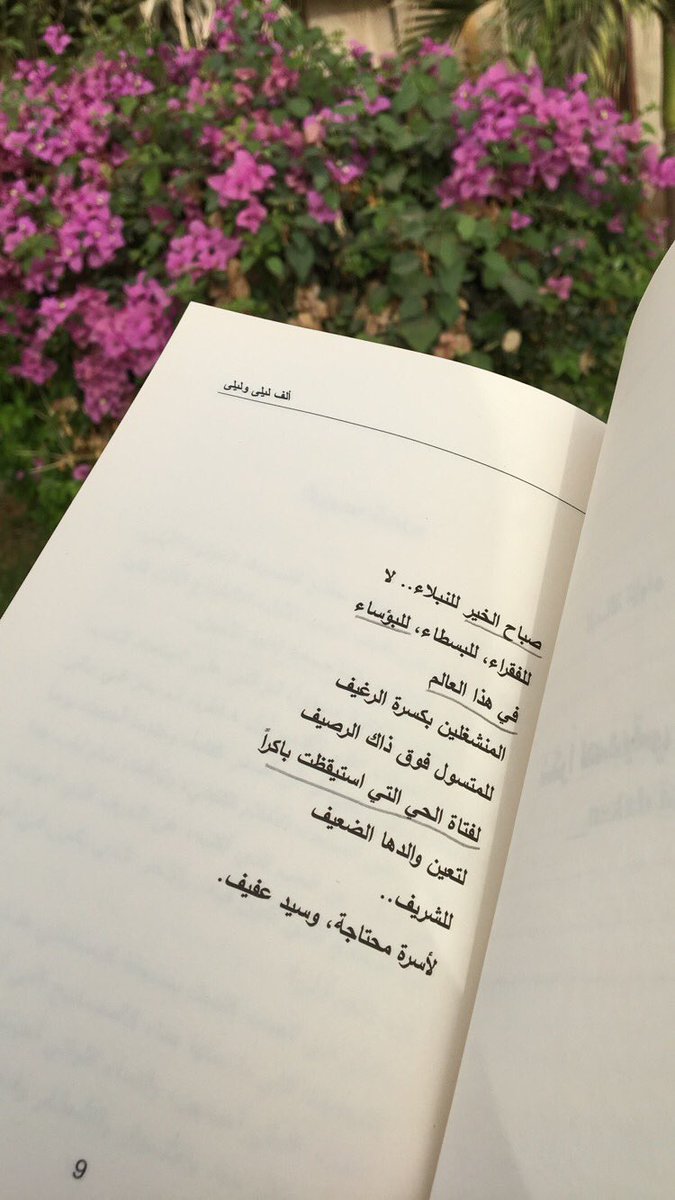 ألف ليلى وليلى
صباح الخير للنبلاء.. لا
للفقراء، للبسطاء، للبؤساء
في هذا العالم
المنشغلين بكسرة الرغيف
للمتسول فوق ذاك الرصيف
لفتاة الحي التي استيقظت باكراً
لتعين والدها الضعيف
للشريف..
لأسرة محتاجة، وسيد عفيف.
9